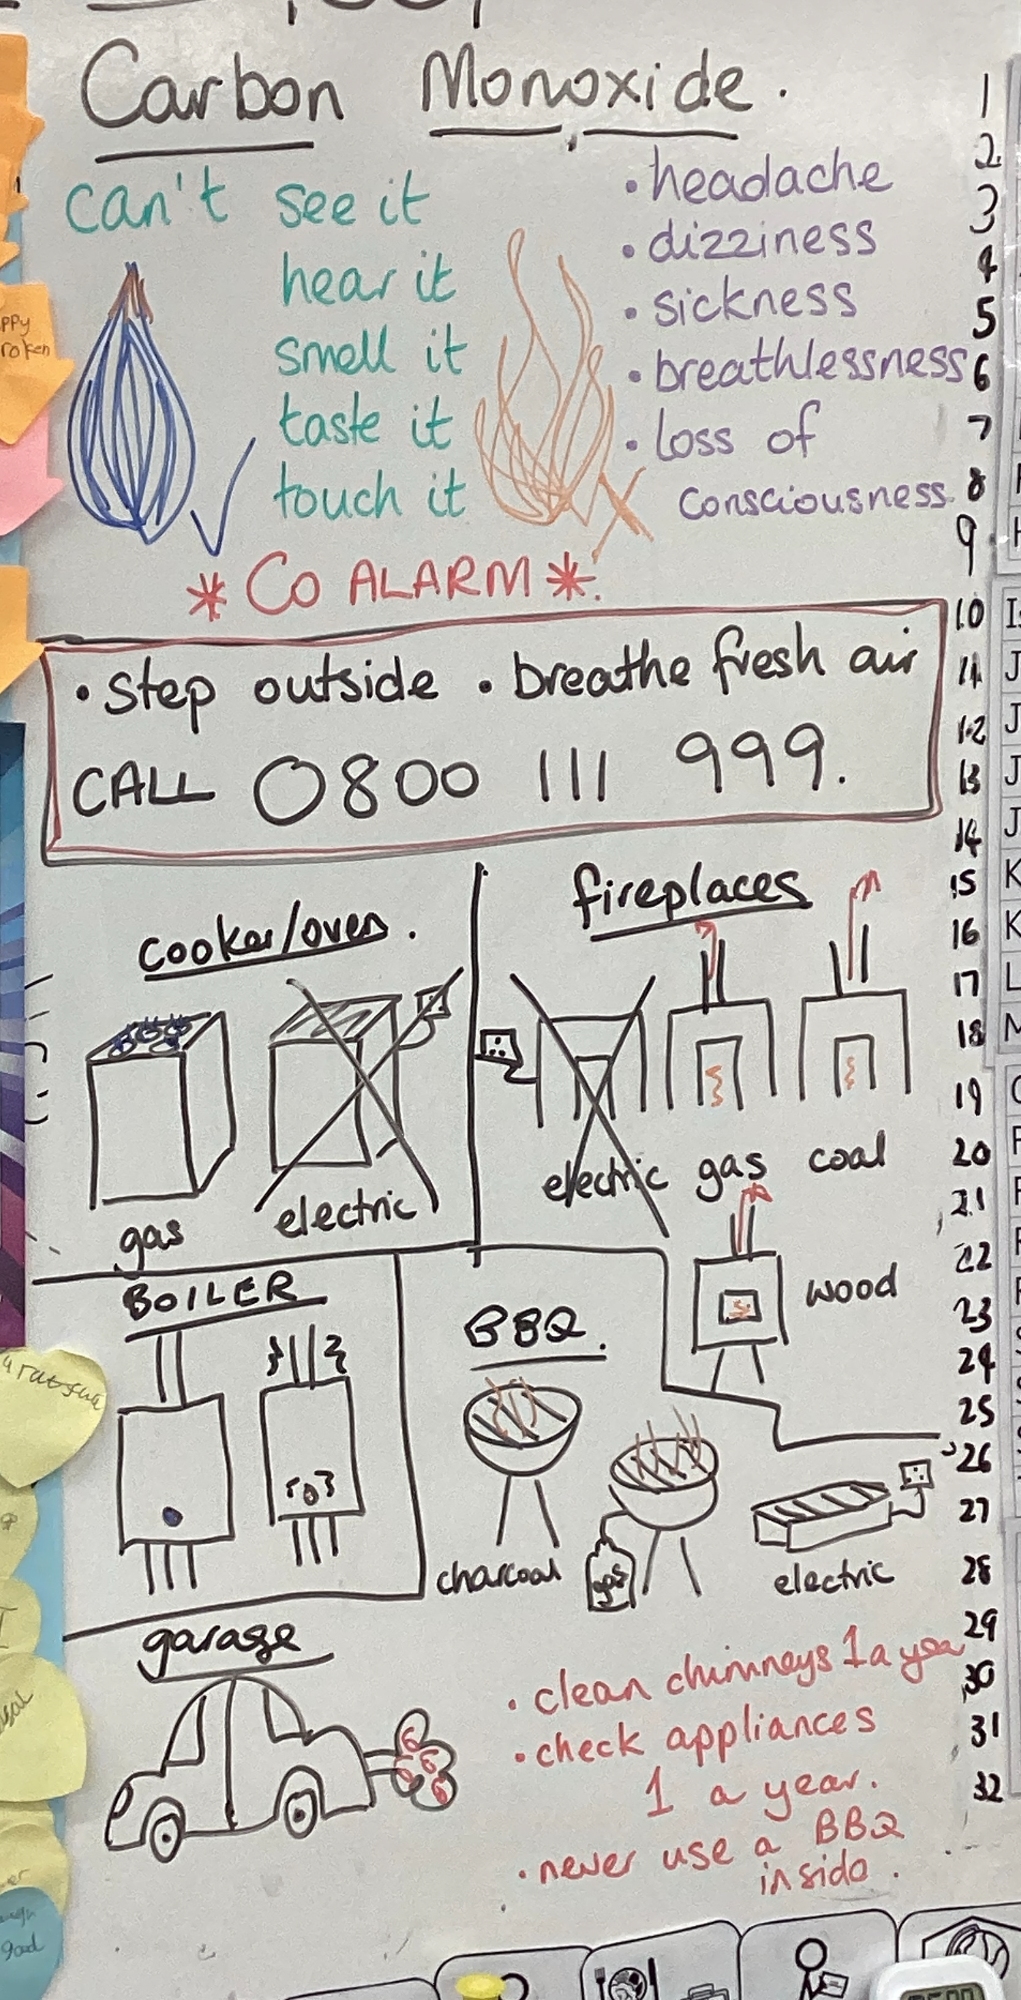 Carbon Monoxide.
can't see it
hear it
smell it
taste it
touch it
• headache
• dizziness
• sickness
• breathlessness
• loss of
consciousness.
* CO ALARM *.
• Step outside • breathe fresh air
CALL 0800 111 999.
cooker/oven.
gas
electric
fireplaces
electric gas coal
wood
BOILER
BBQ.
charcoal
gas
electric
garage
• clean chimneys 1 a year
• check appliances
1 a year.
• never use a BBQ
inside.
1
2
3
4
5
6
7
8
9
10
11
12
13
14
15
16
17
18
19
20
21
22
23
24
25
26
27
28
29
30
31
32
J
J
J
J
K
K
L
M